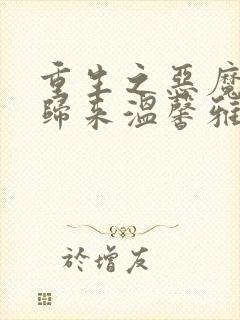 重生之惡魔
歸來溫馨雅
於增友